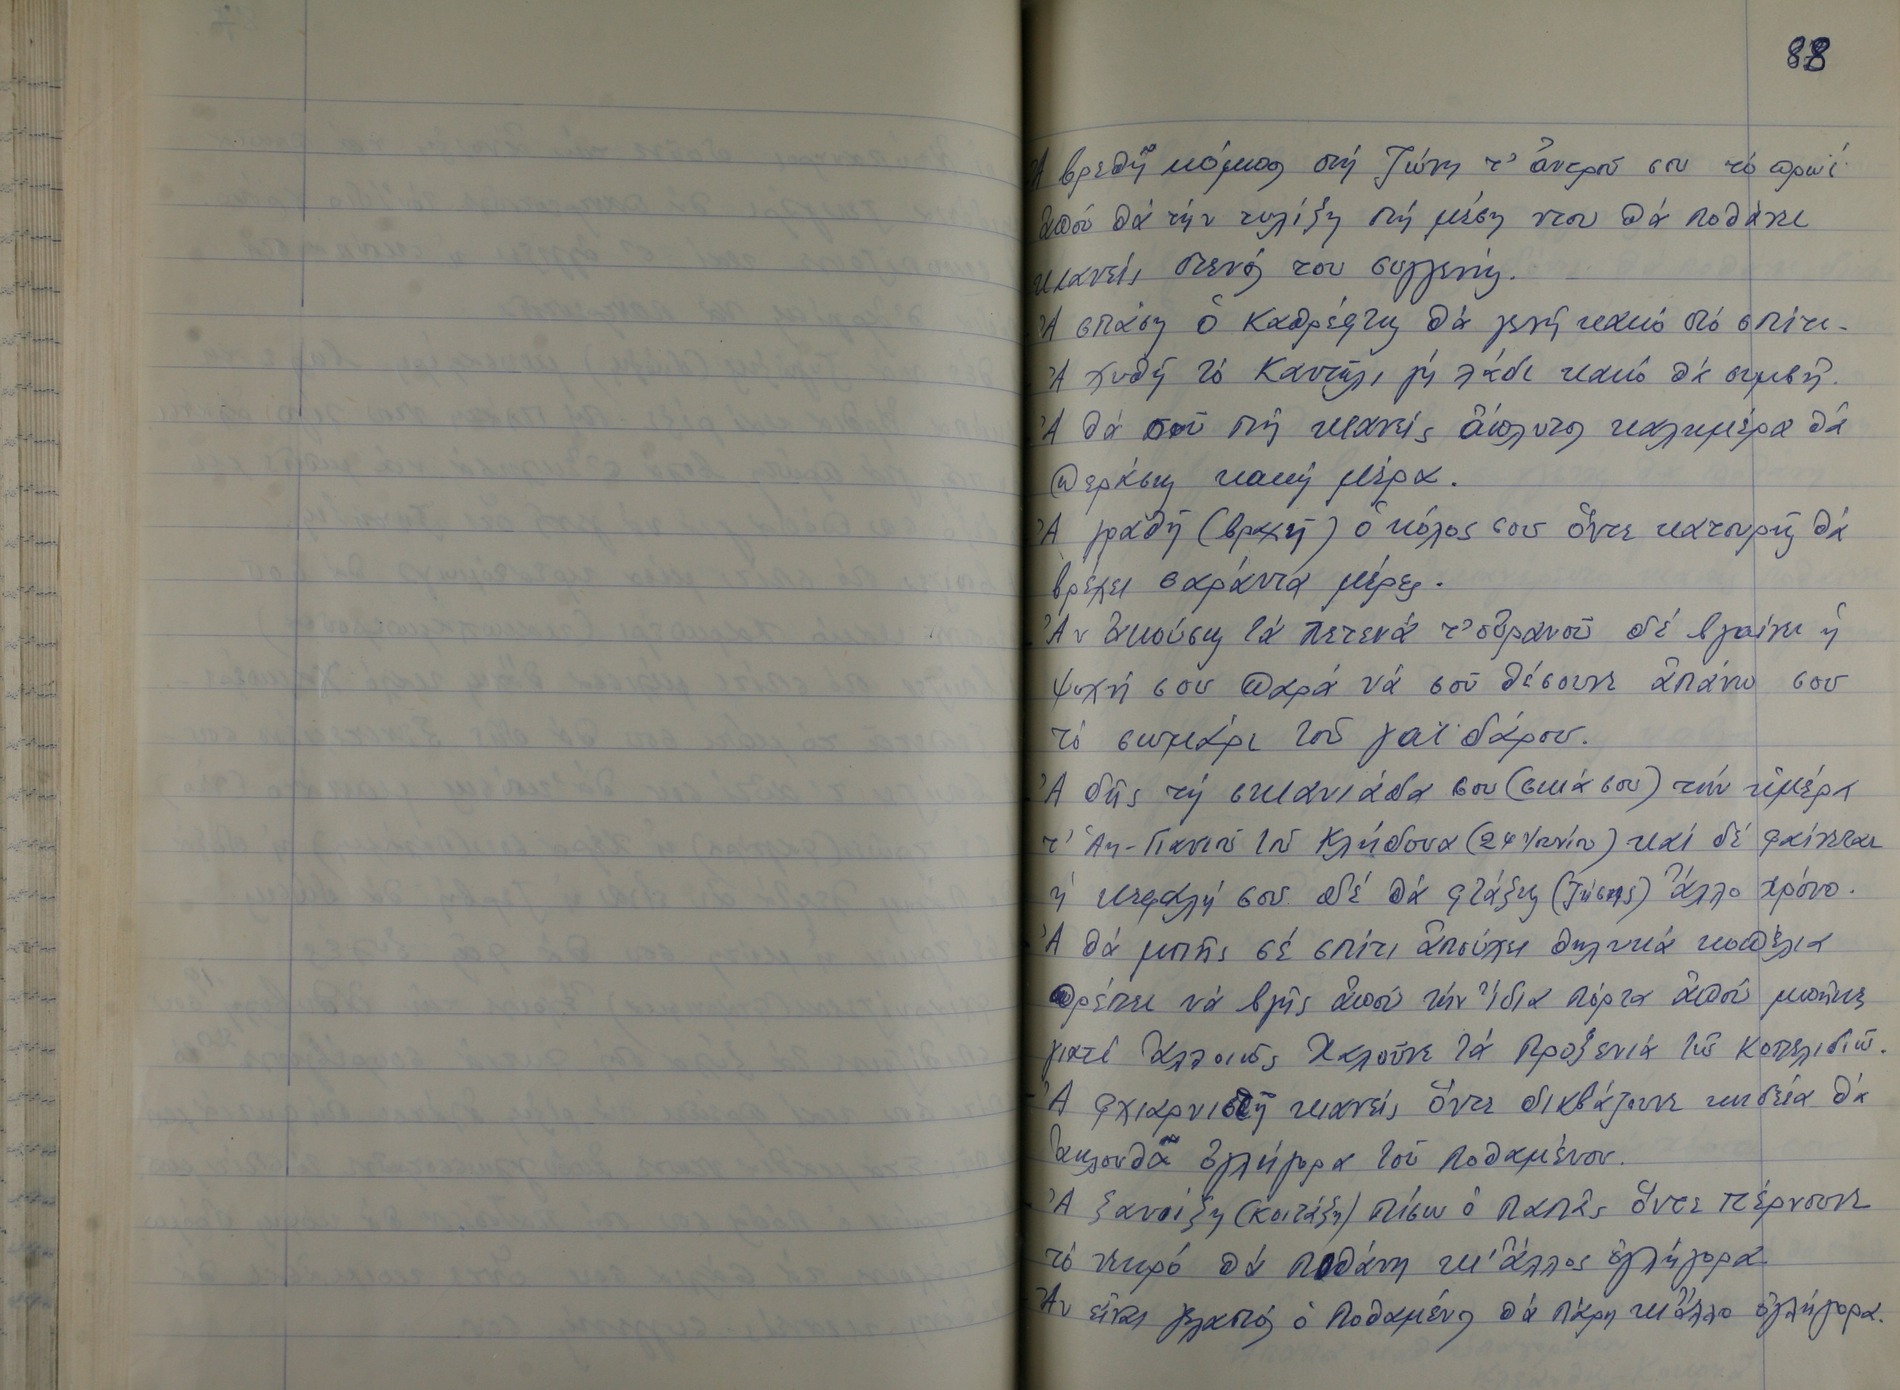 88
Ἀ βρεθῆ κόμπος στή ζώνη τ' ἄντρού σου τό πρωΐ
ἁπού θά τήν τυλίξη στή μέση ντου θά ποθάνει
κιανείς στενός του συγγενής.
- Ἀ σπάση ὁ καθρέφτης θά γενῆ κακό στό σπίτι.
- Ἀ χυθῆ τό καντήλι γή λάδι κακό θά συμβῆ.
- Ἀ θά σοῦ πῆ κιανείς ἄπλυτος καλημέρα θά
περάσης κακή μέρα.
- Ἀ γραθῆ (βραχῆ) ὁ κόλος σου ὄντε κατουρῆς θά
βρέχει σαράντα μέρες.
- Ἄν ἀκούσης τά πετενά τ' οὐρανοῦ δέ βγαίνει ἡ
ψυχή σου παρά νά σοῦ θέσουνε ἀπάνω σου
τό σωμάρι τοῦ γαϊδάρου.
- Ἀ δῆς τή σκιανιάδα σου (σκιά σου) τήν ἡμέρα
τ' Ἁη-Γιαννιοῦ τοῦ Κλήδονα (24 Ἰουνίου) καί δέ φαίνεται
ἡ κεφαλή σου δέ θά φτάξης (ζήσης) ἄλλο χρόνο.
- Ἀ θά μπῆς σέ σπίτι ἁπούχει θηλυκά κοπέλια
πρέπει νά βγῆς ἀπού τήν ἴδια πόρτα ἁπού μπῆκες
γιατί ἀλλοιῶς χαλοῦνε τά προξενιά τῶ κοπελιδιῶ.
- Ἀ φχιαρνιστῆ κιανείς ὄντε διαβάζουνε κηδεία θά
ἀκλουθᾶ ὀγλήγορα τοῦ ποθαμένου.
- Ἀ ξανοίξη (κοιτάξη) πίσω ὁ παπάς ὄντε πέρνουνε
τό νεκρό θά ποθάνη κι' ἄλλος ὀγλήγορα.
Ἄν εἶναι γελαστός ὁ ποθαμένος θά πάρη κι ἄλλο ὀγλήγορα.